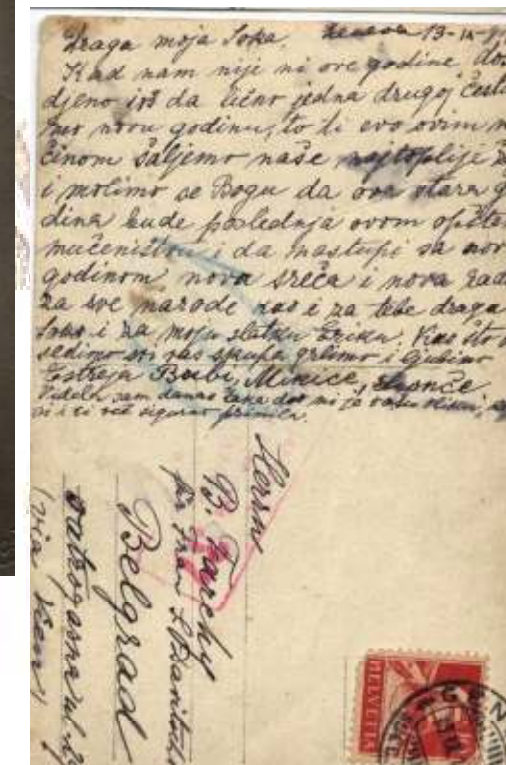 Draga moja Soka, Geneva 13-IX-
Kad nam nije ni ove godine do
djeno još da lično jedna drugoj česti
mo novu godinu, to ti evo ovim n
činom šaljemo naše najtoplije
i molimo se Bogu da ova stara g
dina bude poslednja ovom opštem
mučeništvu i da nastupi sa nov
godinom nova sreća i nova rad
za sve narode kao i za tebe draga
i za moju slatku Eriku. Kao što
sedimo svi vas skupa grlimo i ljubimo
Estreja Bubi, Minice,
Videla sam danas
si i ti već sigurno primila.
Herrn
B. Farchy
für Frau
Belgrad
vatrogasna ul.
(via
HELVETIA
10